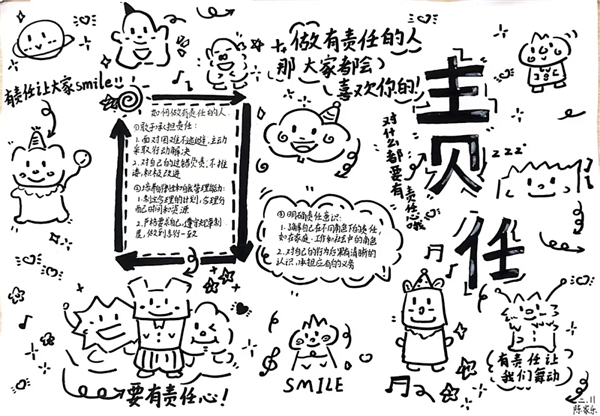 做有责任的人
那大家都会
喜欢你的!
有责任让大家smile!!
责任
对什么都要有
责任心哦
zzz
如何做有责任的人:
①敢于承担责任:
1.面对困难不逃避,主动
采取行动解决
2.对自己的过错负责,不推
诿,积极改进
1.制定合理的计划,合理分
配己时间和资源
2.严格要求自己,遵守规章制
度,做到言行一致
③明确责任意识:
1.了解自己在不同角色下的责任,
如在家庭、工作和社会中的角色
2.对自己的行为后果有清晰的
认识,承担应有的义务
要有责任心!
SMILE
有责任让
我们舞动
二.11